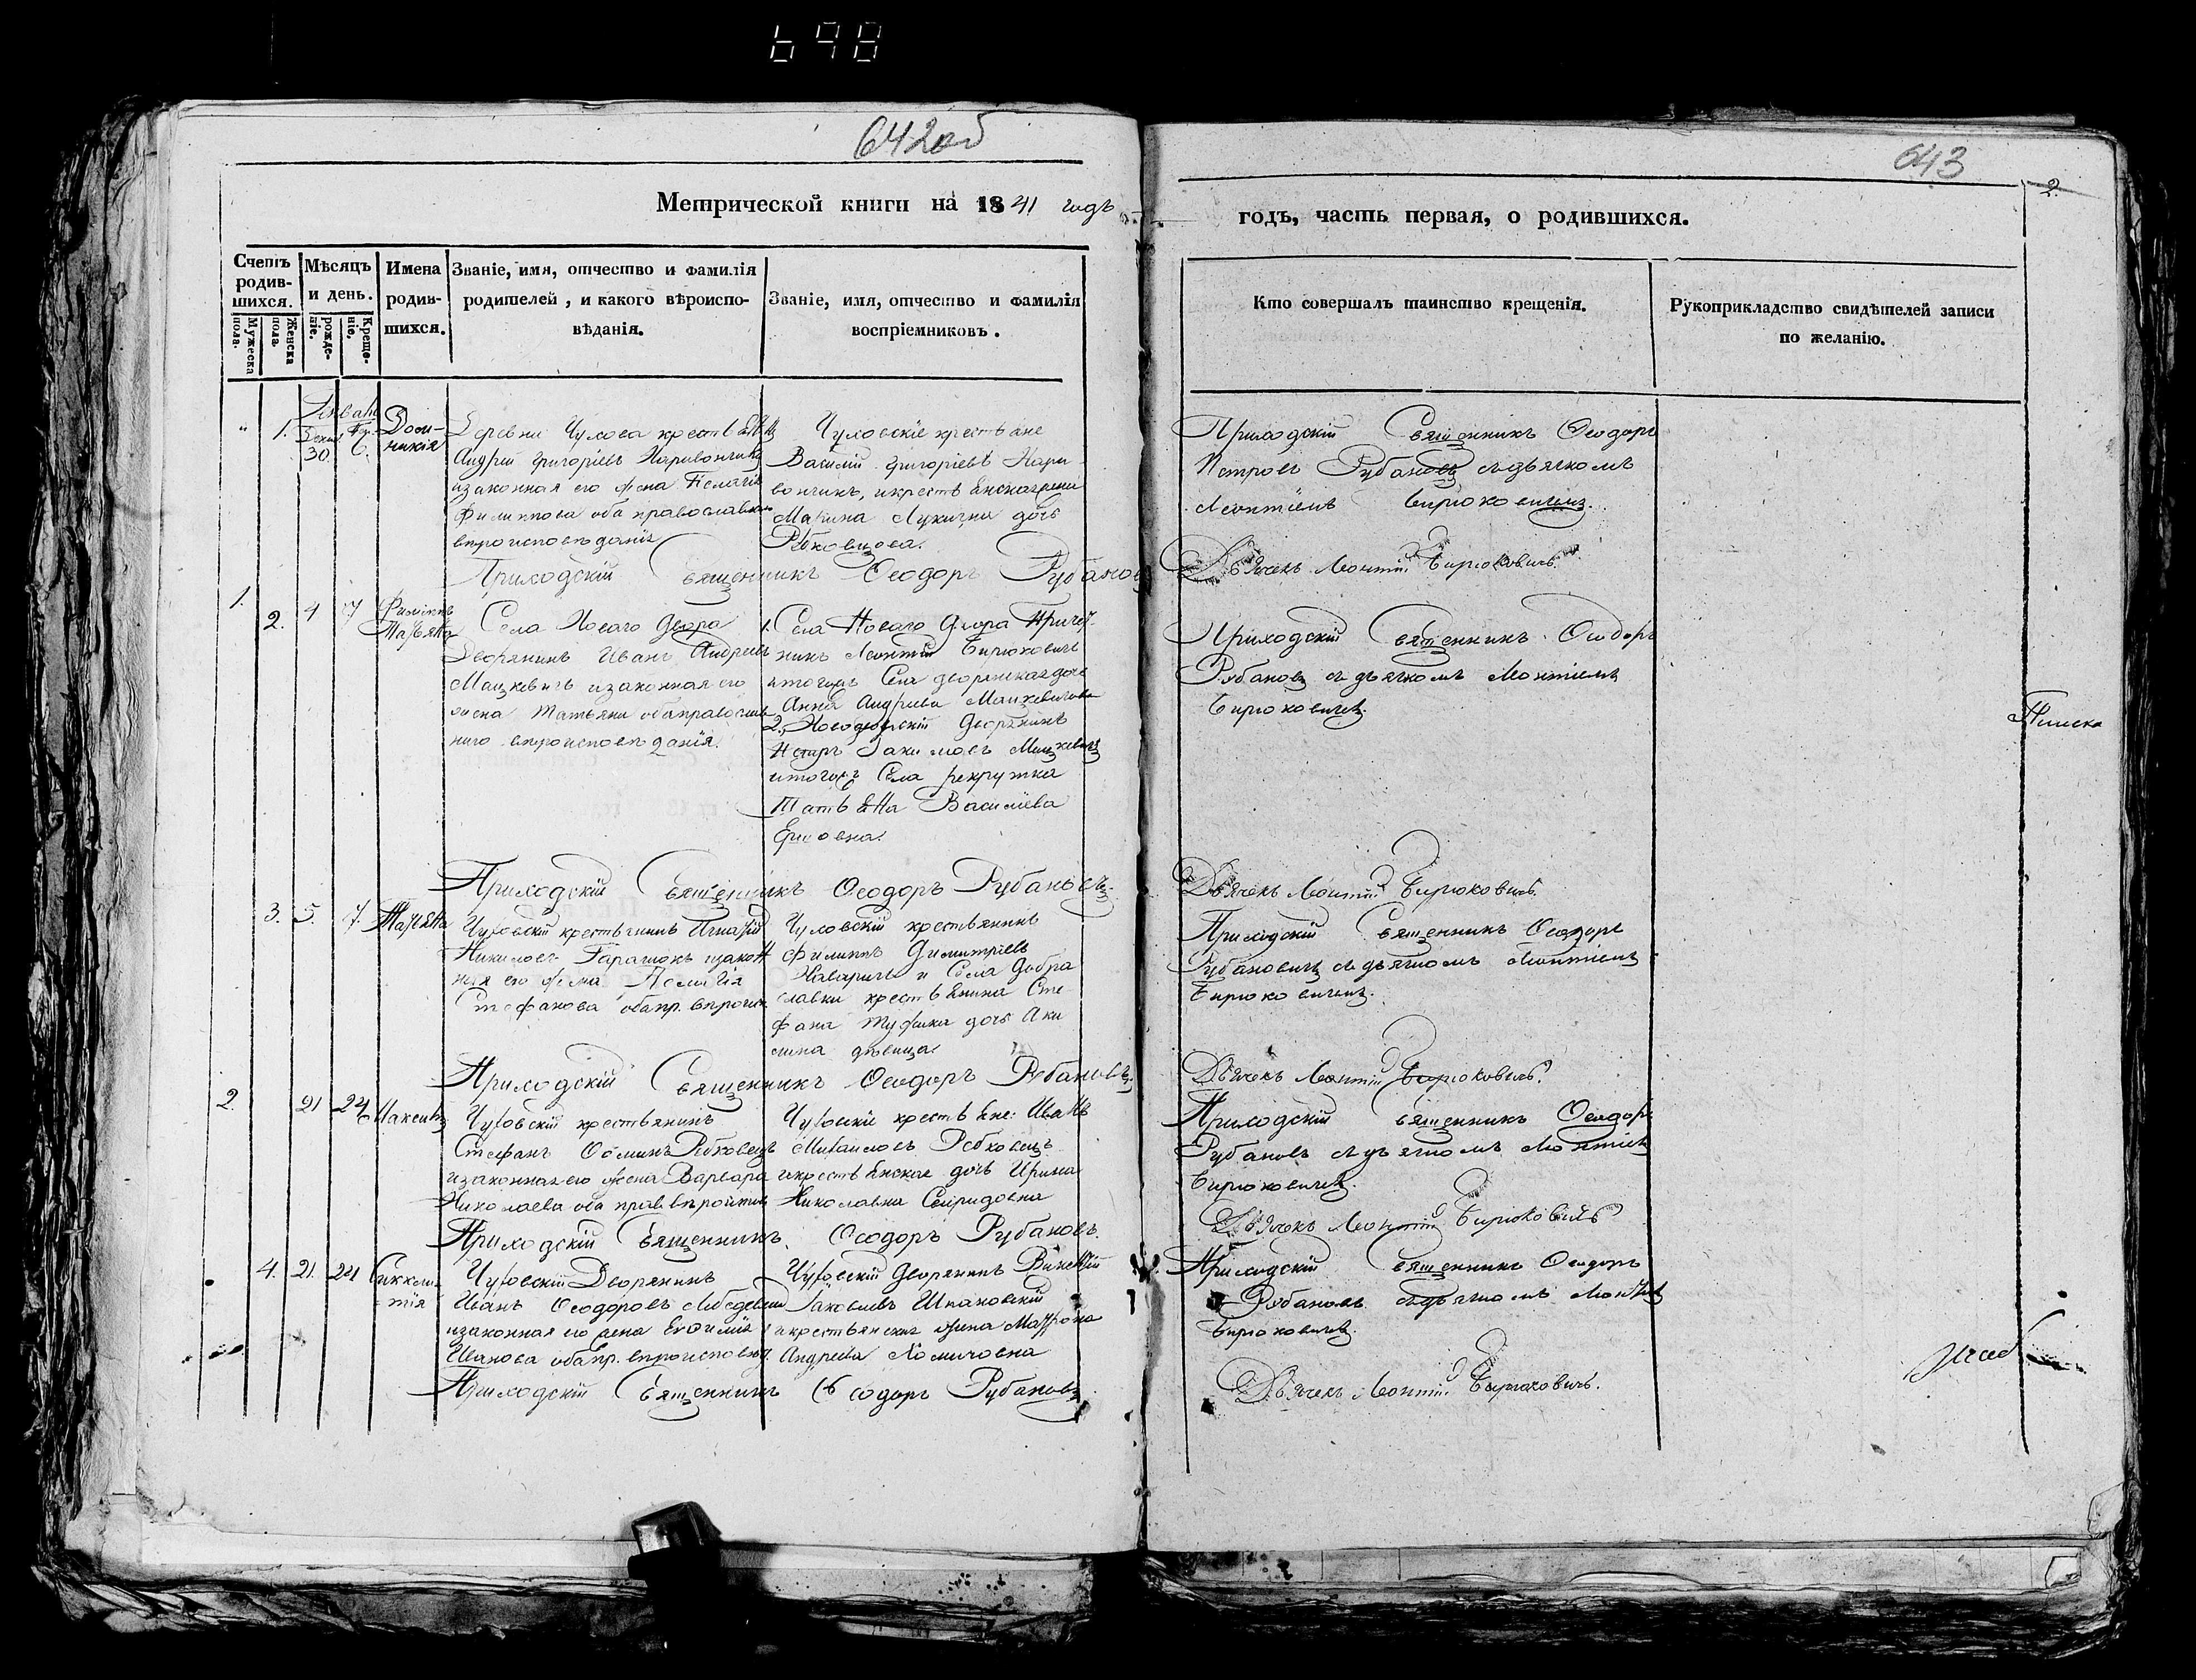 698
642об
Метрической книги на 1841 годъ
Счетъ родившихся.
Мужеска пола.
Женска пола.
Мѣсяцъ и день.
рожденіе.
Крещеніе.
Имена родившихся.
Званіе, имя, отчество и фамилія
родителей, и какого вѣроиспо-
вѣданія.
Званіе, имя, отчество и фамилія
воспріемниковъ.
1.
30
6
Доми-
никія
Деревни Чухова
Андрей Григоріевъ
изаконная его жена Пелагія
Филиппова оба православнаго
вѣроисповѣданія
Чуховскіе крестьяне
Василій Григоріевъ
Марина Лукична дочь
Рабковцова.
Приходскій Священникъ Ѳеодоръ Рубановъ
1.
2. 4 7 Филиппъ
Татьяна
Села Новаго Двора
Дворянинъ Иванъ Андреевъ
Мацкевичъ изаконная его
жена Татьяна обаправослав
наго вѣроисповѣданія.
1. Села Новаго Двора Причет
никъ Леонтій Бирюковичъ
итогожъ Села дворянская дочь
Анна Андреева Мацкевичова
2. Новодворскій Дворянинъ
Акимовъ Мацкевичъ
итогожъ Села рекрутка
Татьяна Василіева
Приходскій Священникъ Ѳеодоръ Рубановъ
3. 5. 7. Татьяна
Чуховскій крестьянинъ Игнатій
изакон
ная его жена Пелагія
Стефанова оба пр. вѣроисп
Чуховскій крестьянинъ
Филиппъ Димитріевъ
и Села Добра
славки крестьянина Сте
фана дочь Аки
лина дѣвица.
Приходскій Священникъ Ѳеодоръ Рубановъ.
2. 21 24 Максимъ
Чуховскій крестьянинъ
Стефанъ Ѳоминъ Рабковецъ
изаконная его жена Варвара
Николаева оба прав. вѣроиспов
Чуховскіе крестьяне: Иванъ
Михайловъ Рабковецъ
икрестьянская дочь Ирина
Николаевна Свиридовна
Приходскій Священникъ Ѳеодоръ Рубановъ.
4. 21. 24 Синкли-
тія
Чуховскій Дворянинъ
Иванъ Ѳеодоровъ
изаконная его жена Евфимія
Иванова оба пр. вѣроисповѣд.
Чуховскій Дворянинъ Викентій
Яковлевъ
икрестьянская жена Матрона
Андреева Хомичовна
Приходскій Священникъ Ѳеодоръ Рубановъ
643
2.
годъ, часть первая, о родившихся.
Кто совершалъ таинство крещенія.
Рукоприкладство свидѣтелей записи
по желанію.
Приходскій Священникъ Ѳеодоръ
Петровъ Рубановъ съдьячкомъ
Леонтіемъ Бирюковичемъ.
Дьячекъ Леонтій Бирюковичъ.
Приходскій Священникъ Ѳеодоръ
Рубановъ съдьячкомъ Леонтіемъ
Бирюковичемъ.
Дьячекъ Леонтій Бирюковичъ.
Приходскій Священникъ Ѳеодоръ
Рубановичъ съдьячкомъ Леонтіемъ
Бирюковичемъ.
Дьячекъ Леонтій Бирюковичъ.
Приходскій Священникъ Ѳеодоръ
Рубановъ съдьячкомъ Леонтіемъ
Бирюковичемъ.
Дьячекъ Леонтій Бирюковичъ
Приходскій Священникъ Ѳеодоръ
Рубановъ съдьячкомъ Леонтіемъ
Бирюковичемъ.
Дьячекъ Леонтій Бирюковичъ.